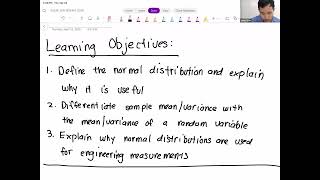 Learning Objectives:
1. Define the normal distribution and explain
why it is useful
2. Differentiate sample mean/variance with
the mean/variance of a random variable
3. Explain why normal distributions are used
for engineering measurements